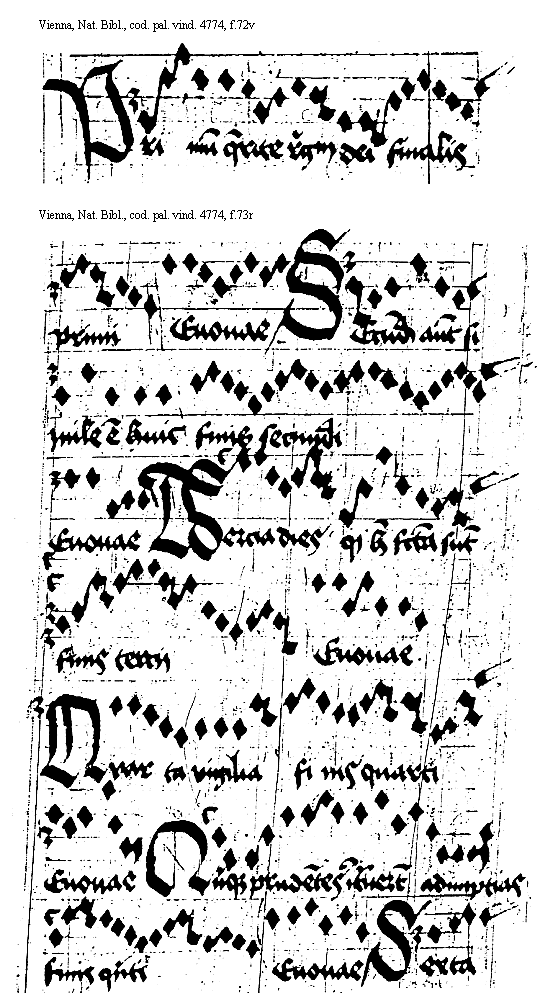 Vienna, Nat. Bibl., cod. pal. vind. 4774, f.72v
Pri mū q̄rite rg̅m dei finalis
Vienna, Nat. Bibl., cod. pal. vind. 4774, f.73r
primi Euouae Secūd aut si
mile ē huic finis secundi
Euouae Tercia dies q̄ h̄ fcta sūt
finis tercii Euouae
Quar ta vigilia fi nis quarti
Euouae Quīq prudētes ītuert ad nuptias
finis qūti Euouae Sexta